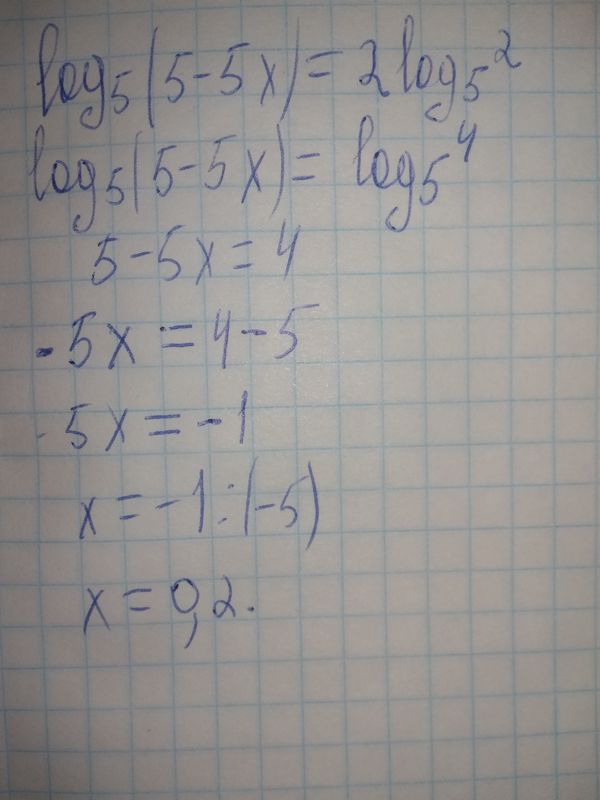 log₅(5-5x)=2log₅2
log₅(5-5x)=log₅4
5-5x=4
-5x=4-5
-5x=-1
x=-1:(-5)
x=0,2.